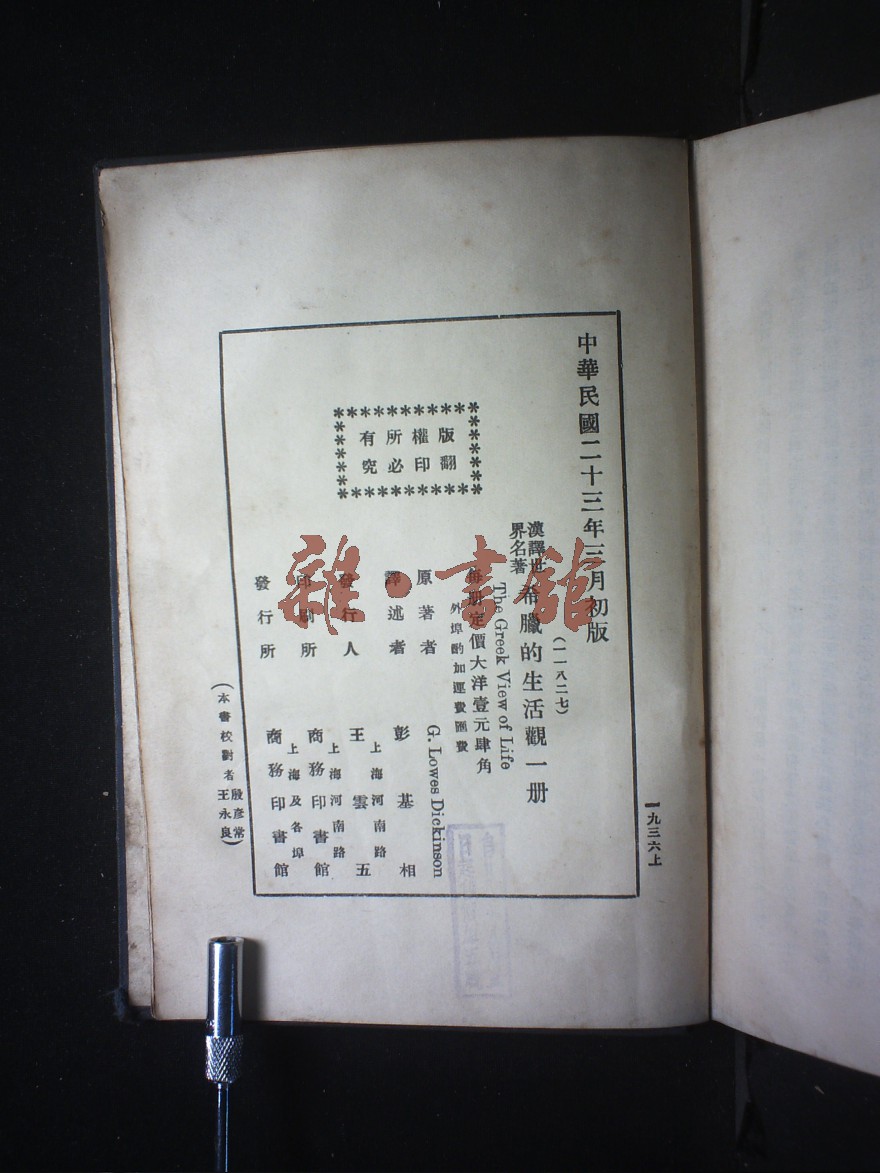 中華民國二十三年三月初版
(一一八二七)
漢譯世界名著
希臘的生活觀一册
The Greek View of Life
每册定價大洋壹元肆角
外埠酌加運費匯費
版權所有
翻印必究
原著者 G. Lowes Dickinson
譯述者 彭基相
發行人 王雲五
上海河南路
印刷所 商務印書館
上海河南路
發行所 商務印書館
上海及各埠
(本書校對者殷彦常王永良)
一九三六上
雜·書館